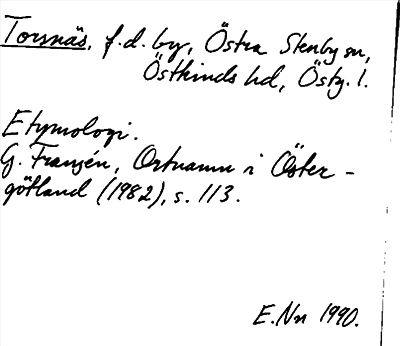 Torsnäs, f.d. by, Östra Stenby sn,
Östkinds hd, Östg. l.
Etymologi.
G. Franzén, Ortnamn i Öster-
götland (1982), s. 113.
E.Nn 1990.